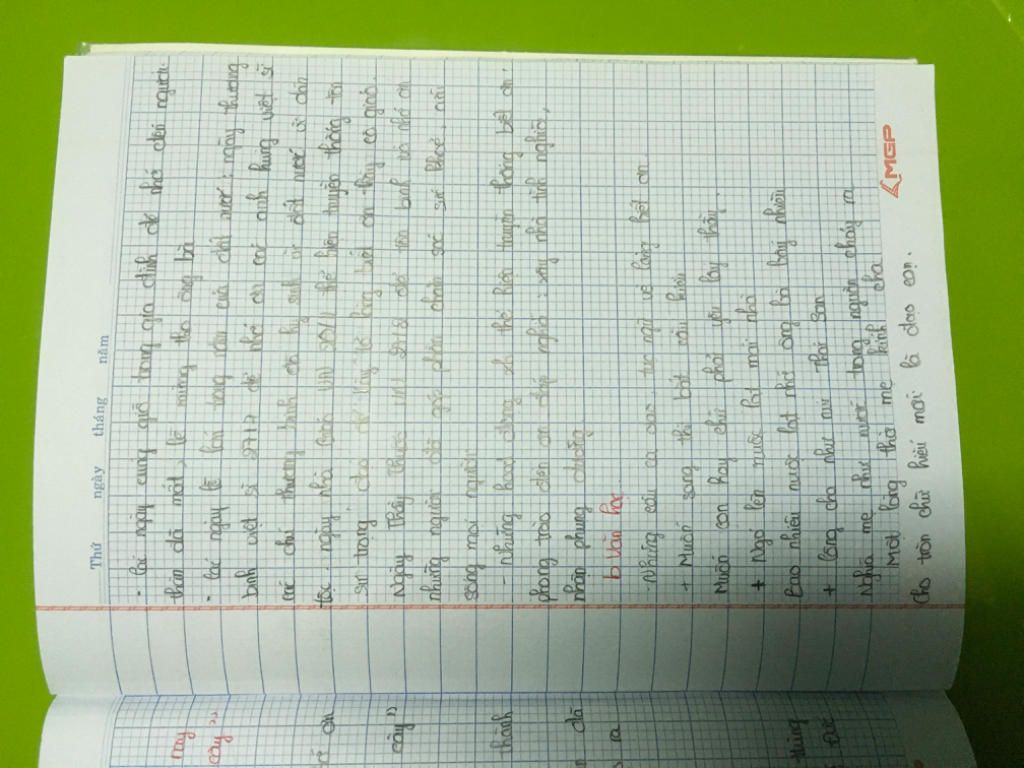 Thứ ngày tháng năm
- Các ngày cúng giỗ trong gia đình để nhớ đến người
thân đã mất, lễ mừng thọ ông bà
- Các ngày lễ lớn trong năm của đất nước: ngày thương
binh liệt sĩ 27/7 để nhớ ơn các anh hùng liệt sĩ
các chú thương binh đã hy sinh vì đất nước vì dân
tộc. ngày nhà giáo VN 20/11 thể hiện truyền thống tôn
sư trọng đạo để bày tỏ lòng biết ơn thầy cô giáo.
Ngày Thầy thuốc VN 27/2 để tôn vinh và nhớ ơn
những người đã góp phần chăm sóc sức khoẻ, đời
sống mọi người
- Những hoạt động xh thể hiện truyền thống biết ơn.
phong trào đền ơn đáp nghĩa: xây nhà tình nghĩa,
nhận phụng dưỡng
b Văn học
- Những câu ca dao, tục ngữ về lòng biết ơn
+ Muốn sang thì bắt cầu kiều
Muốn con hay chữ phải yêu lấy thầy.
+ Ngó lên nuộc lạt mái nhà
Bao nhiêu nuộc lạt nhớ ông bà bấy nhiêu
+ Công cha như núi Thái Sơn
Nghĩa mẹ như nước trong nguồn chảy ra
Một lòng thờ mẹ kính cha
Cho tròn chữ hiếu mới là đạo con.
MGP
cây
cây"
ơn
cây"
hành
đã
ra